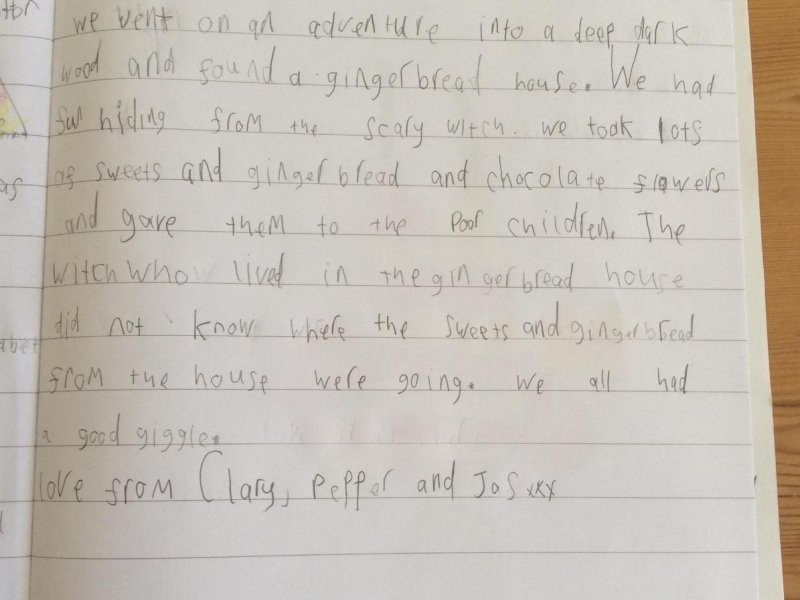 we went on an adventure into a deep dark
wood and found a gingerbread house. We had
fun hiding from the scary witch. we took lots
of sweets and gingerbread and chocolate flowers
and gave them to the poor children. The
witch who lived in the gingerbread house
did not know where the sweets and gingerbread
from the house were going. we all had
a good giggle.
love from Clary, Pepper and Jas xxx